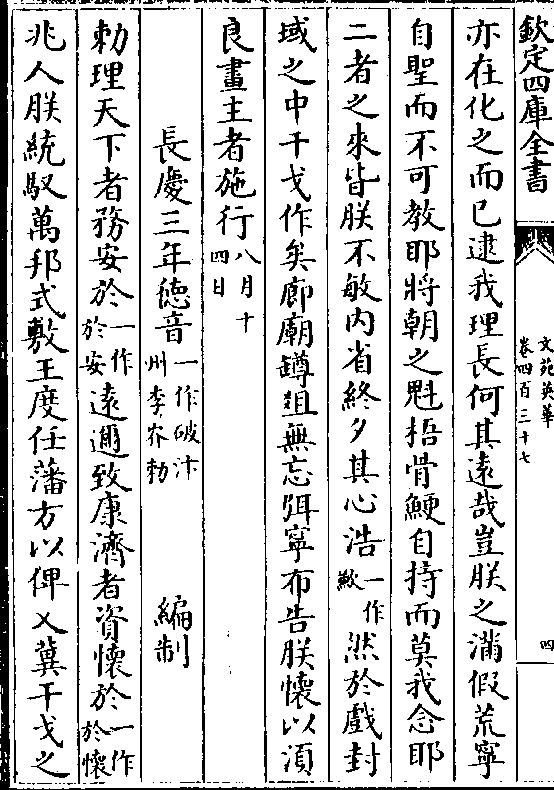 欽定四庫全書
文苑英華
卷四百三十七
四
亦在化之而已逮我理長何其遠哉豈朕之滿假荒寧
自聖而不可教耶將朝之魁梧骨鯁自持而莫我念耶
二者之來皆朕不敏内省終夕其心浩一作歎然於戲封
域之中干戈作矣廊廟罇爼無忘弭寧布告朕懷以湏
良畫主者施行八月十四日
長慶三年德音一作破汴州李㝏勅 編制
勅理天下者務安於一作於安遠邇致康濟者資懷於一作於懷
兆人朕統馭萬邦式敷王度任藩方以俾乂冀干戈之